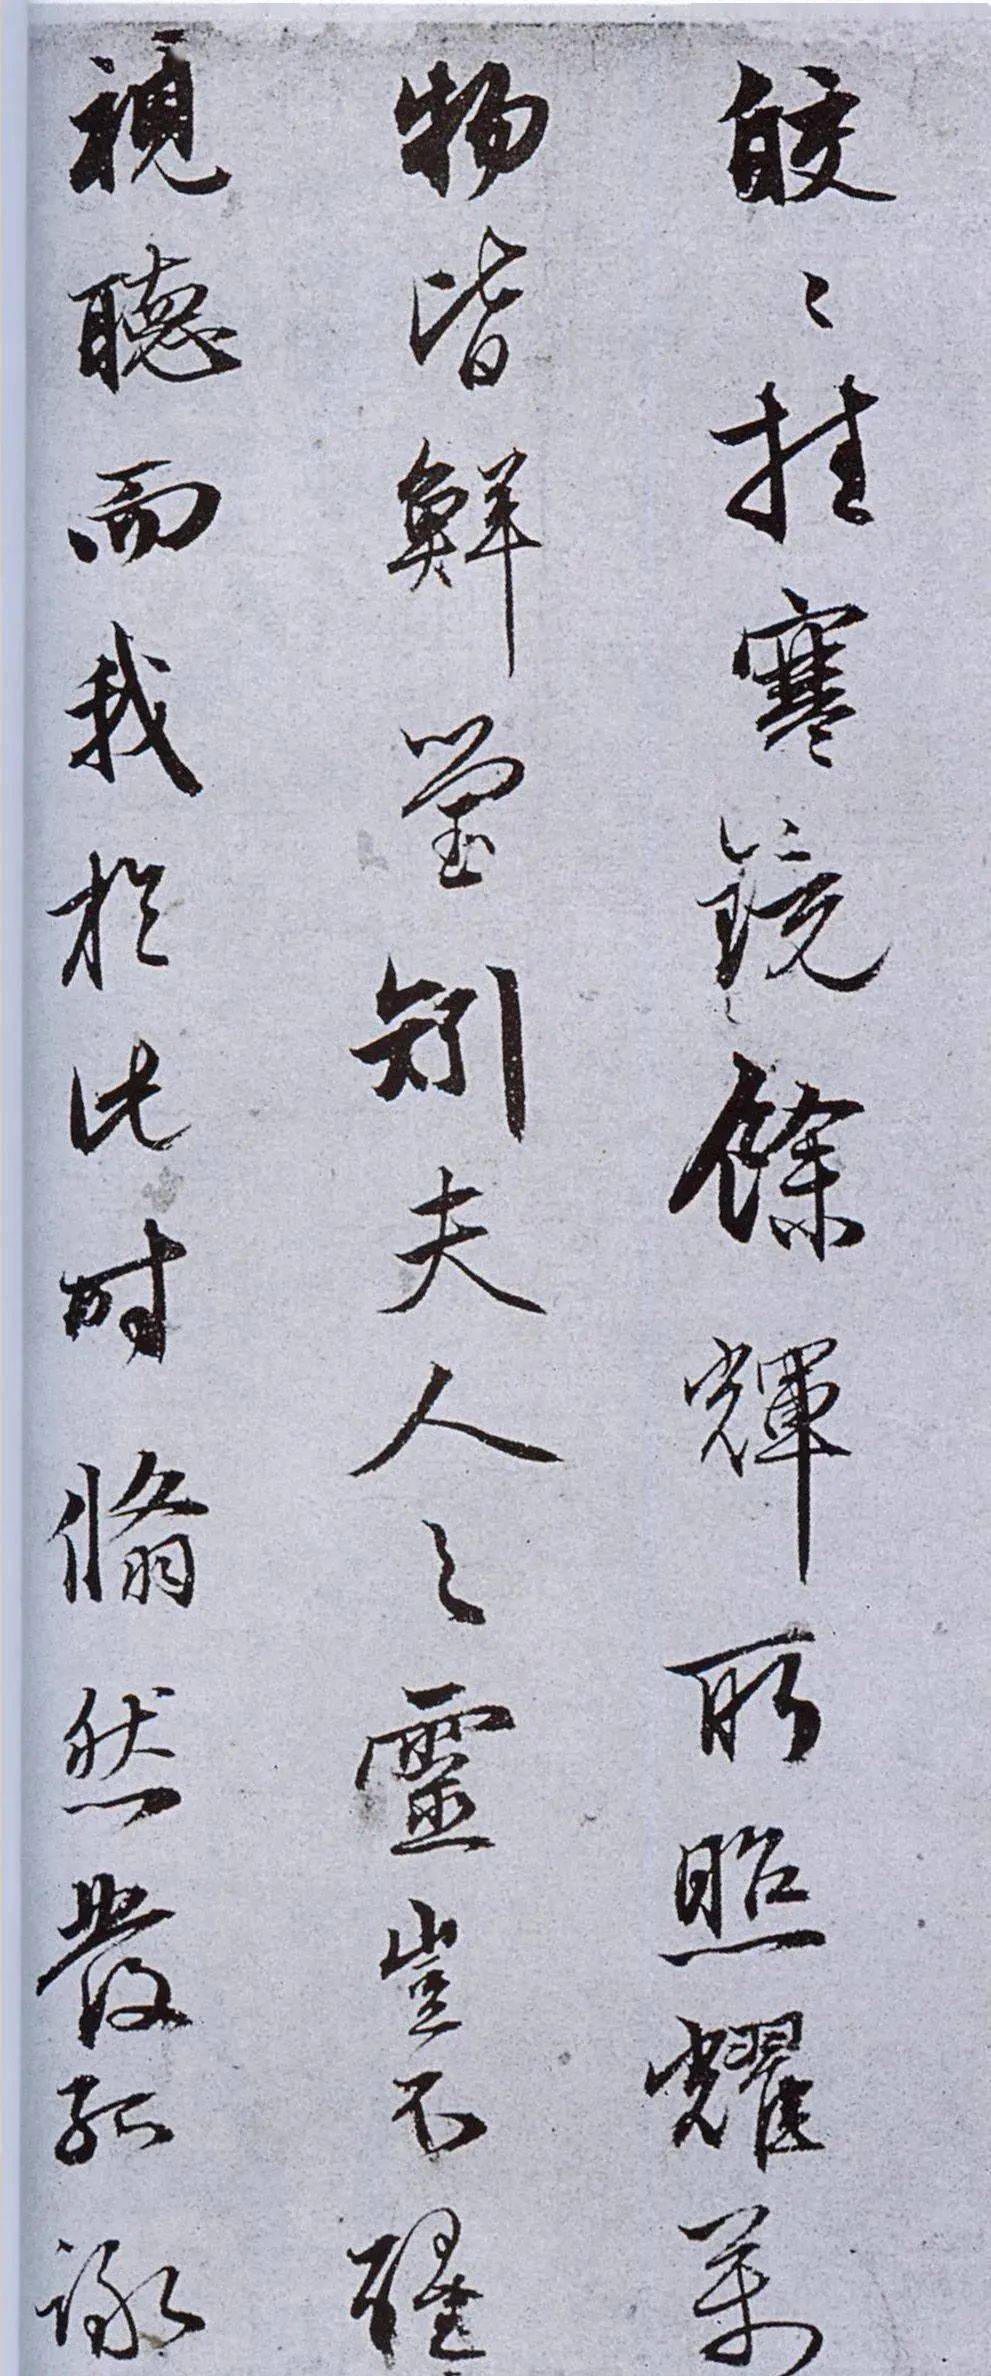 皎〻挂寒鏡餘輝所照耀萬
物皆鮮瑩矧夫人之靈豈不醒
視聽而我於此時翛然發孤詠